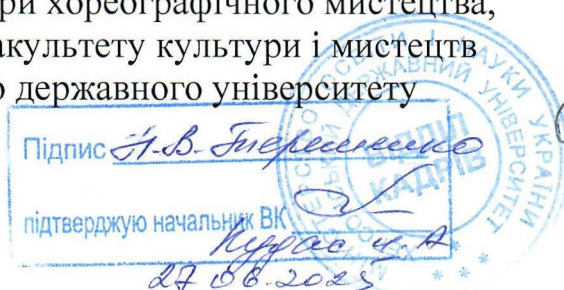 ри хореографічного мистецтва,
акультету культури і мистецтв
о державного університету
Підпис Н.В. Терешенко
підтверджую начальник ВК
Кудас
ОСВІТИ І НАУКИ УКРАЇНИ
ДЕРЖАВНИЙ УНІВЕРСИТЕТ
ВІДДІЛ
КАДРІВ